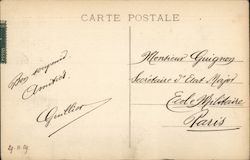 CARTE POSTALE
Bon souvenir
Amitiés
Guillier
Monsieur Guignon
Secrétaire d'Etat Major
Ecole Militaire
Paris